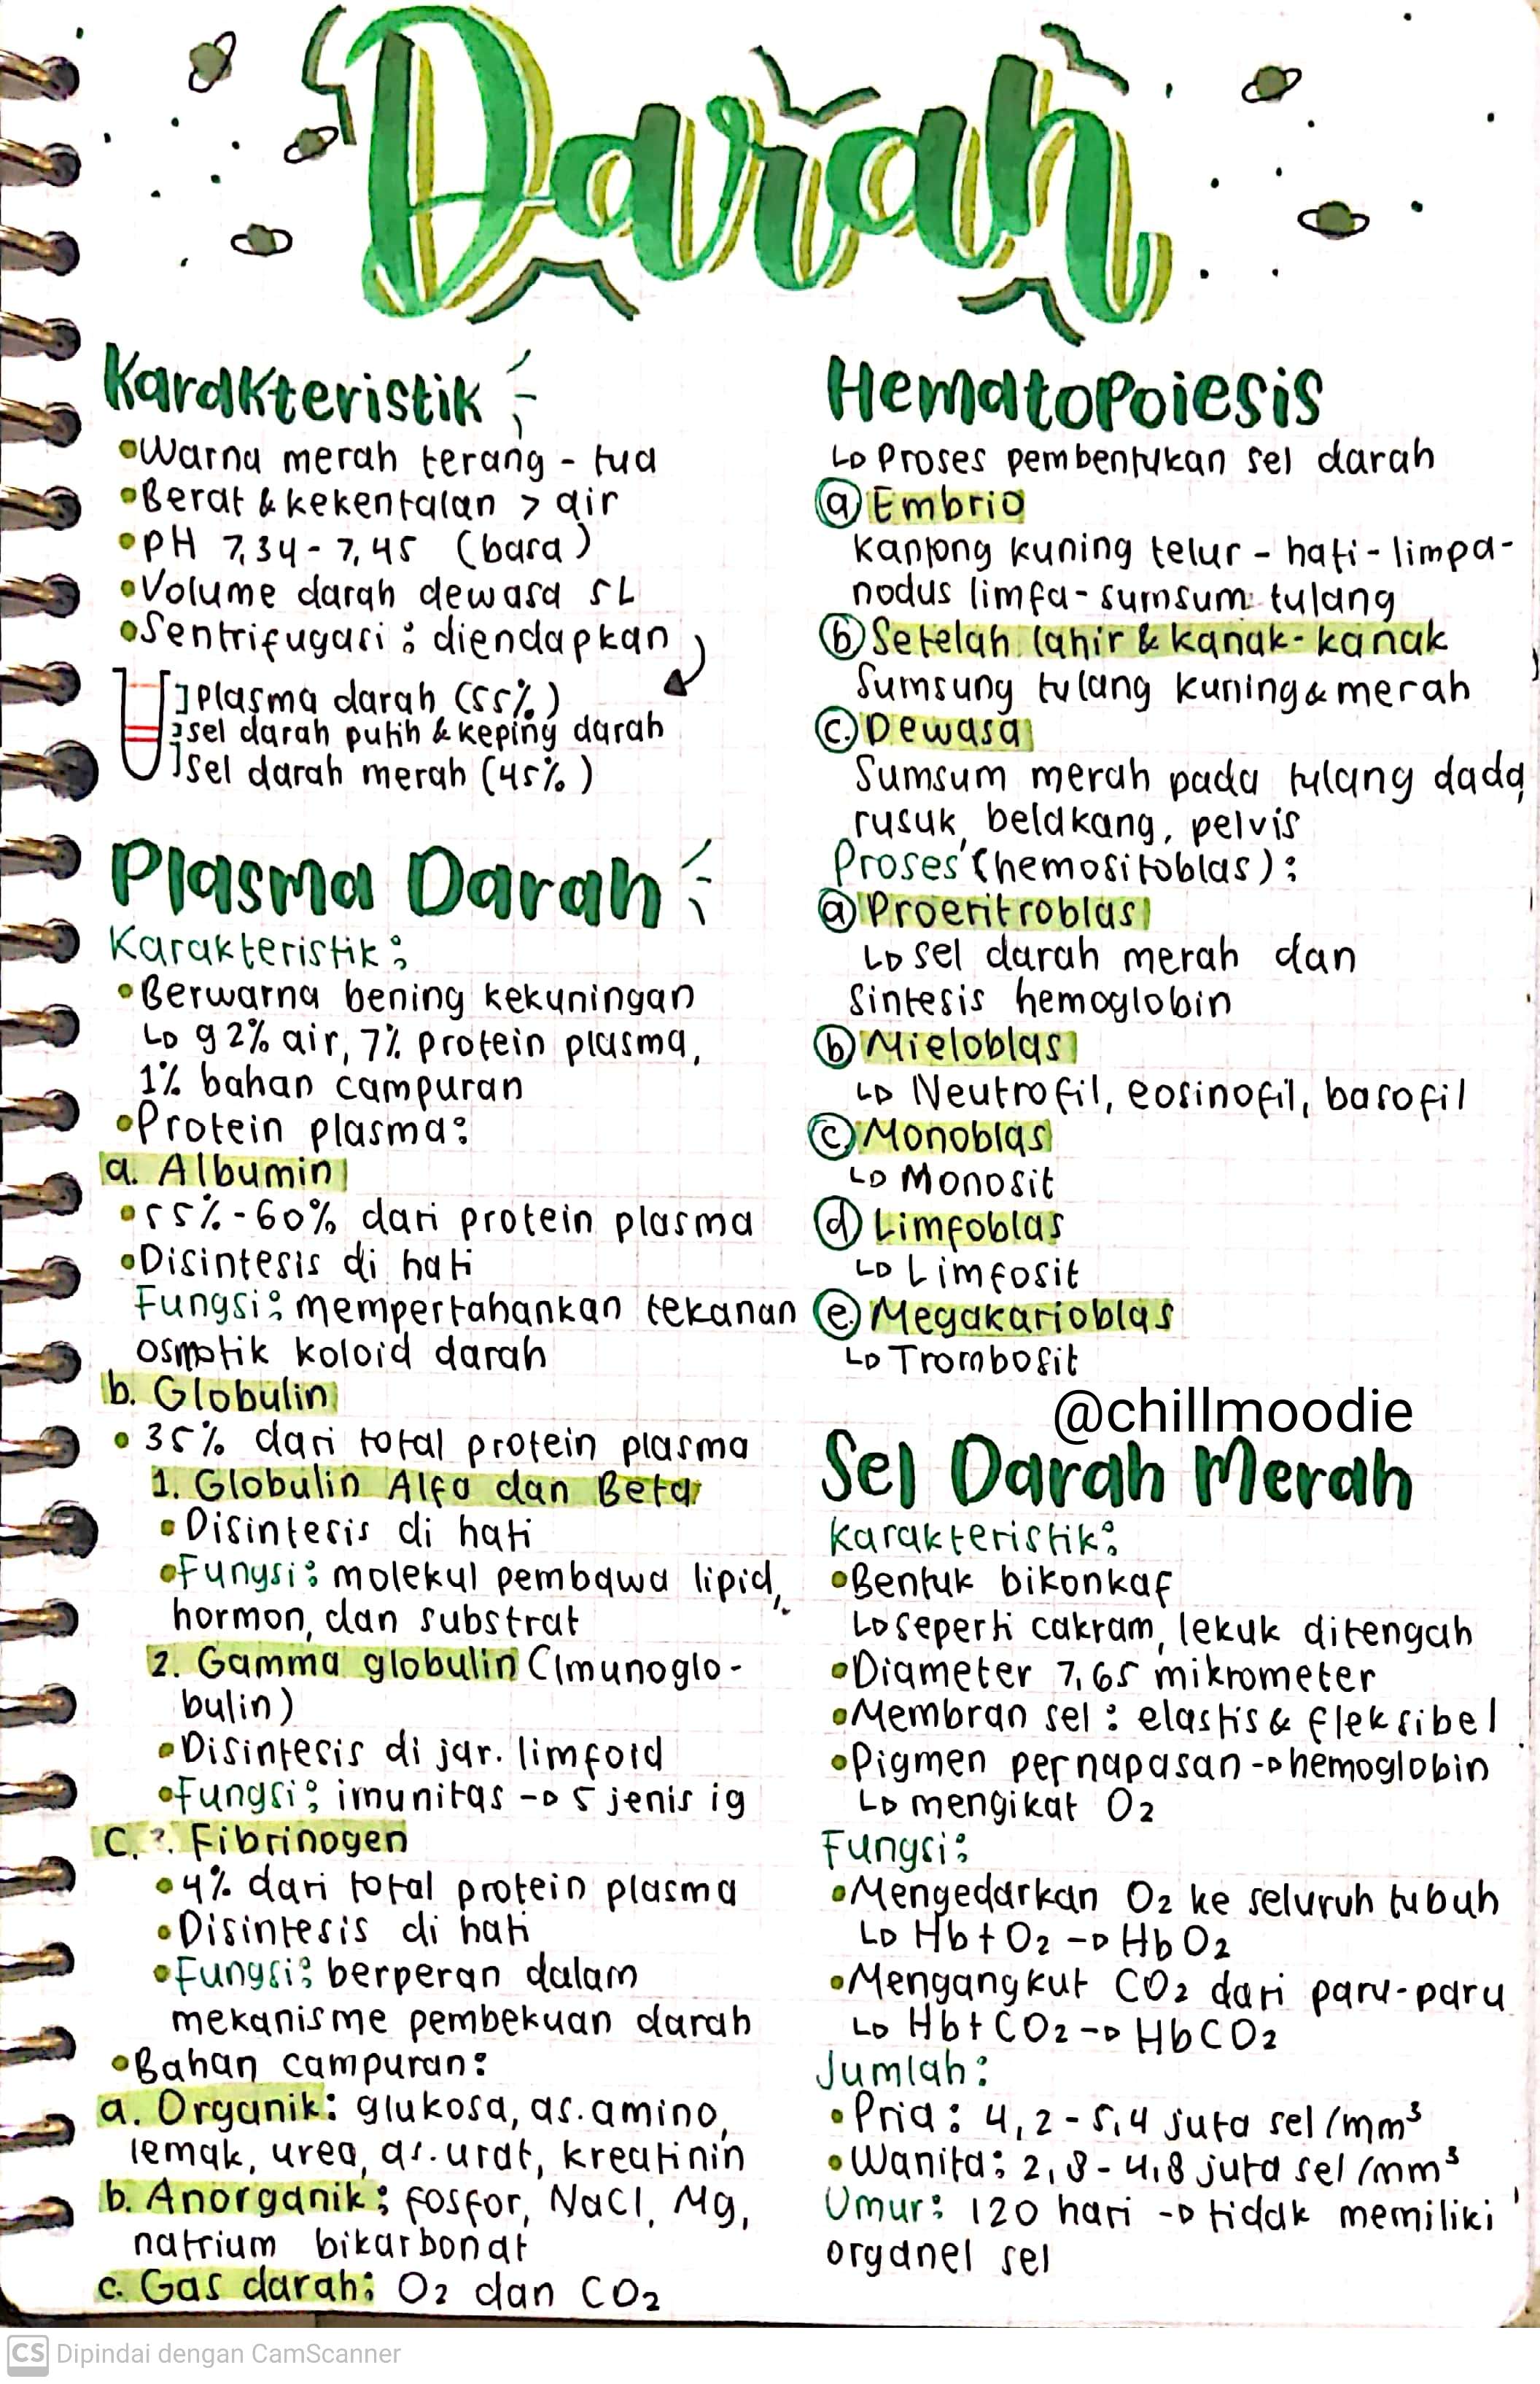 Darah
Karakteristik
•Warna merah terang - tua
•Berat & kekentalan > air
•pH 7,34 - 7,45 (basa)
•Volume darah dewasa 5L
•Sentrifugasi : diendapkan
]Plasma darah (55%)
]sel darah putih & keping darah
]Sel darah merah (45%)
Plasma Darah
Karakteristik :
•Berwarna bening kekuningan
↳ 92% air, 7% protein plasma,
1% bahan campuran
•Protein plasma:
a. Albumin
•55%-60% dari protein plasma
•Disintesis di hati
Fungsi: mempertahankan tekanan
osmotik koloid darah
b. Globulin
• 35% dari total protein plasma
1. Globulin Alfa dan Beta
•Disintesis di hati
•Fungsi: molekul pembawa lipid,
hormon, dan substrat
2. Gamma globulin (Imunoglo-
bulin)
•Disintesis di jar. limfoid
•Fungsi: imunitas → 5 jenis ig
c. Fibrinogen
•4% dari total protein plasma
•Disintesis di hati
•Fungsi: berperan dalam
mekanisme pembekuan darah
•Bahan campuran:
a. Organik: glukosa, as.amino,
lemak, urea, as.urat, kreatinin
b. Anorganik: fosfor, NaCl, Mg,
natrium bikarbonat
c. Gas darah: O₂ dan CO₂
Hematopoiesis
↳ Proses pembentukan sel darah
ⓐ Embrio
Kantong kuning telur - hati - limpa-
nodus limfa - sumsum tulang
ⓑ Setelah lahir & kanak-kanak
Sumsung tulang kuning & merah
ⓒ Dewasa
Sumsum merah pada tulang dada,
rusuk, belakang, pelvis
Proses (hemositoblas):
ⓐ Proeritroblas
↳ sel darah merah dan
sintesis hemoglobin
ⓑ Mieloblas
↳ Neutrofil, eosinofil, basofil
ⓒ Monoblas
↳ Monosit
ⓓ Limfoblas
↳ Limfosit
ⓔ Megakarioblas
↳ Trombosit
@chillmoodie
Sel Darah Merah
Karakteristik:
•Bentuk bikonkaf
↳ seperti cakram, lekuk ditengah
•Diameter 7,65 mikrometer
•Membran sel : elastis & fleksibel
•Pigmen pernapasan → hemoglobin
↳ mengikat O₂
Fungsi:
•Mengedarkan O₂ ke seluruh tubuh
↳ Hb + O₂ → HbO₂
•Mengangkut CO₂ dari paru-paru
↳ Hb + CO₂ → HbCO₂
Jumlah:
•Pria : 4,2 - 5,4 juta sel /mm³
•Wanita: 2,8 - 4,8 juta sel /mm³
Umur: 120 hari → tidak memiliki
organel sel
CS Dipindai dengan CamScanner